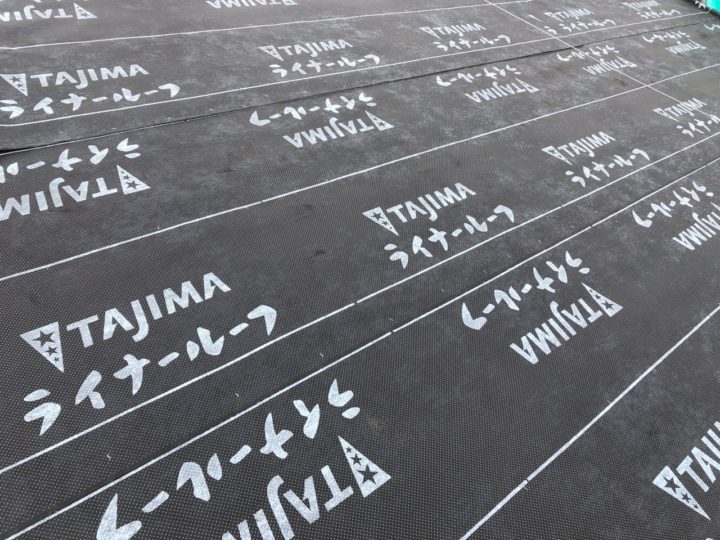 TAJIMA
ライナールーフ
TAJIMA
ライナールーフ
TAJIMA
ライナールーフ
TAJIMA
ライナールーフ
TAJIMA
ライナールーフ
TAJIMA
ライナールーフ
TAJIMA
ライナールーフ
TAJIMA
ライナールーフ
TAJIMA
ライナールーフ
TAJIMA
ライナールーフ
TAJIMA
ライナールーフ
TAJIMA
ライナールーフ